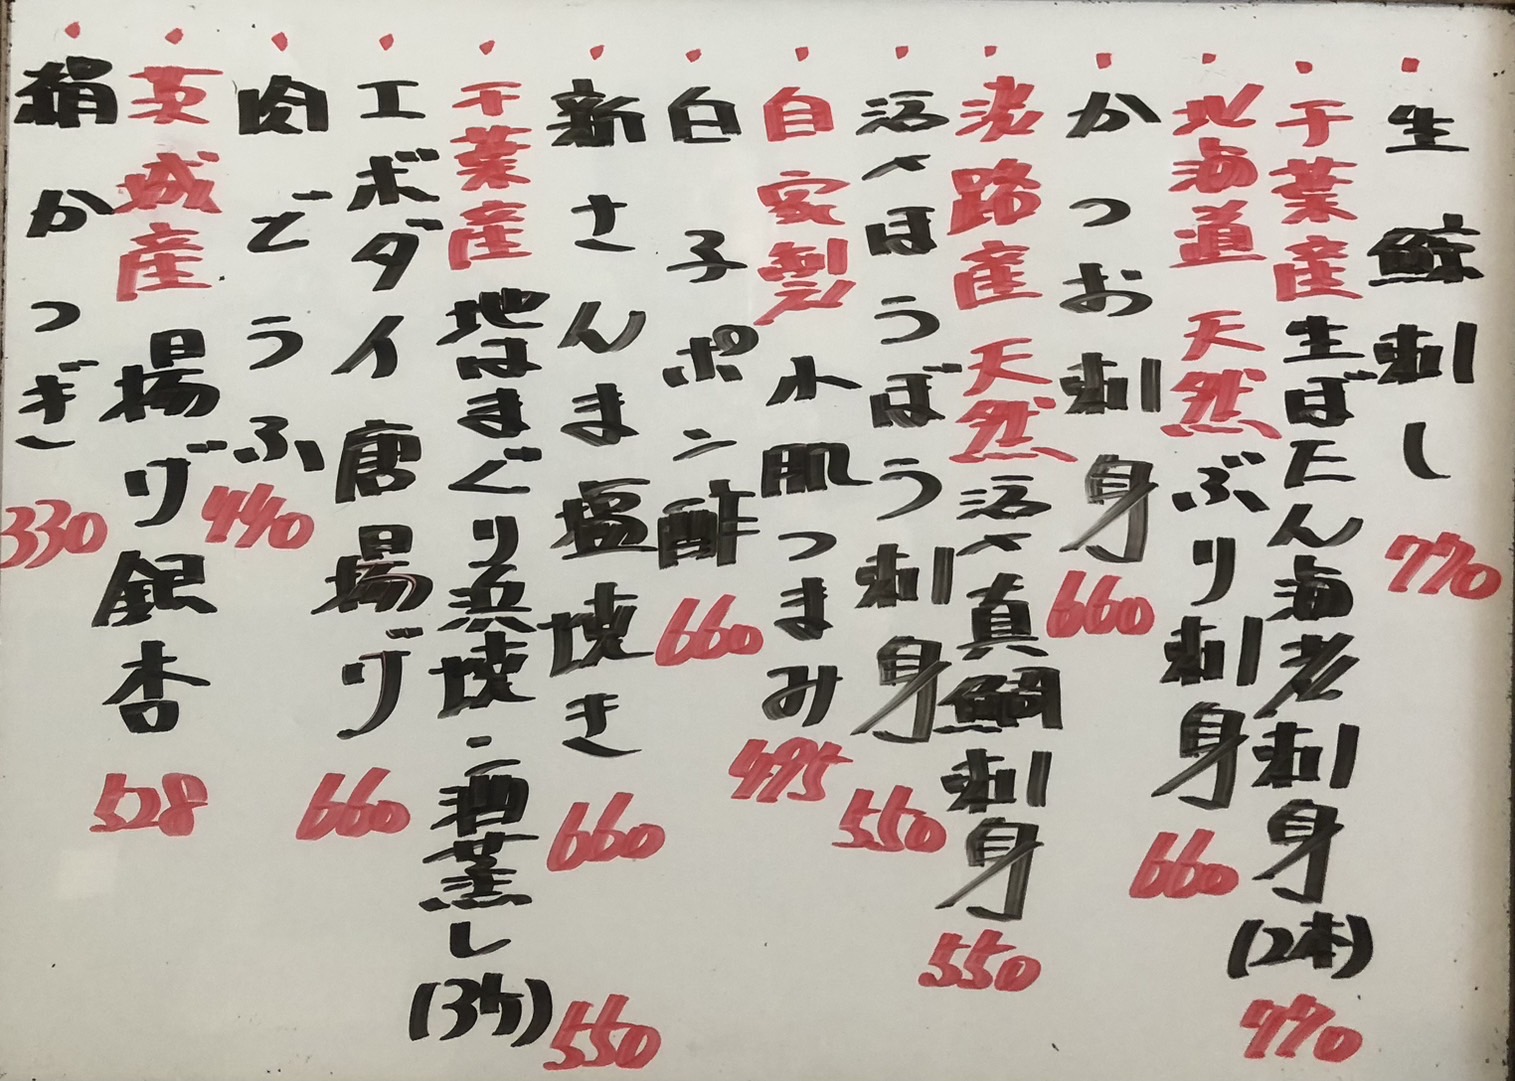 生鯨刺し 770
千葉産 生ぼたん海老刺身(2本) 770
北海道 天然 ぶり刺身 660
かつお刺身 660
淡路産 天然 活〆真鯛刺身 550
活〆ほうぼう刺身 550
自家製 水肌つまみ 495
白子ポン酢 660
新さんま塩焼き 660
千葉産 地はまぐり浜焼・酒蒸し(3ケ) 550
エボダイ唐揚げ 660
肉どうふ 440
茨城産 揚げ銀杏 528
絹かつぎ 330